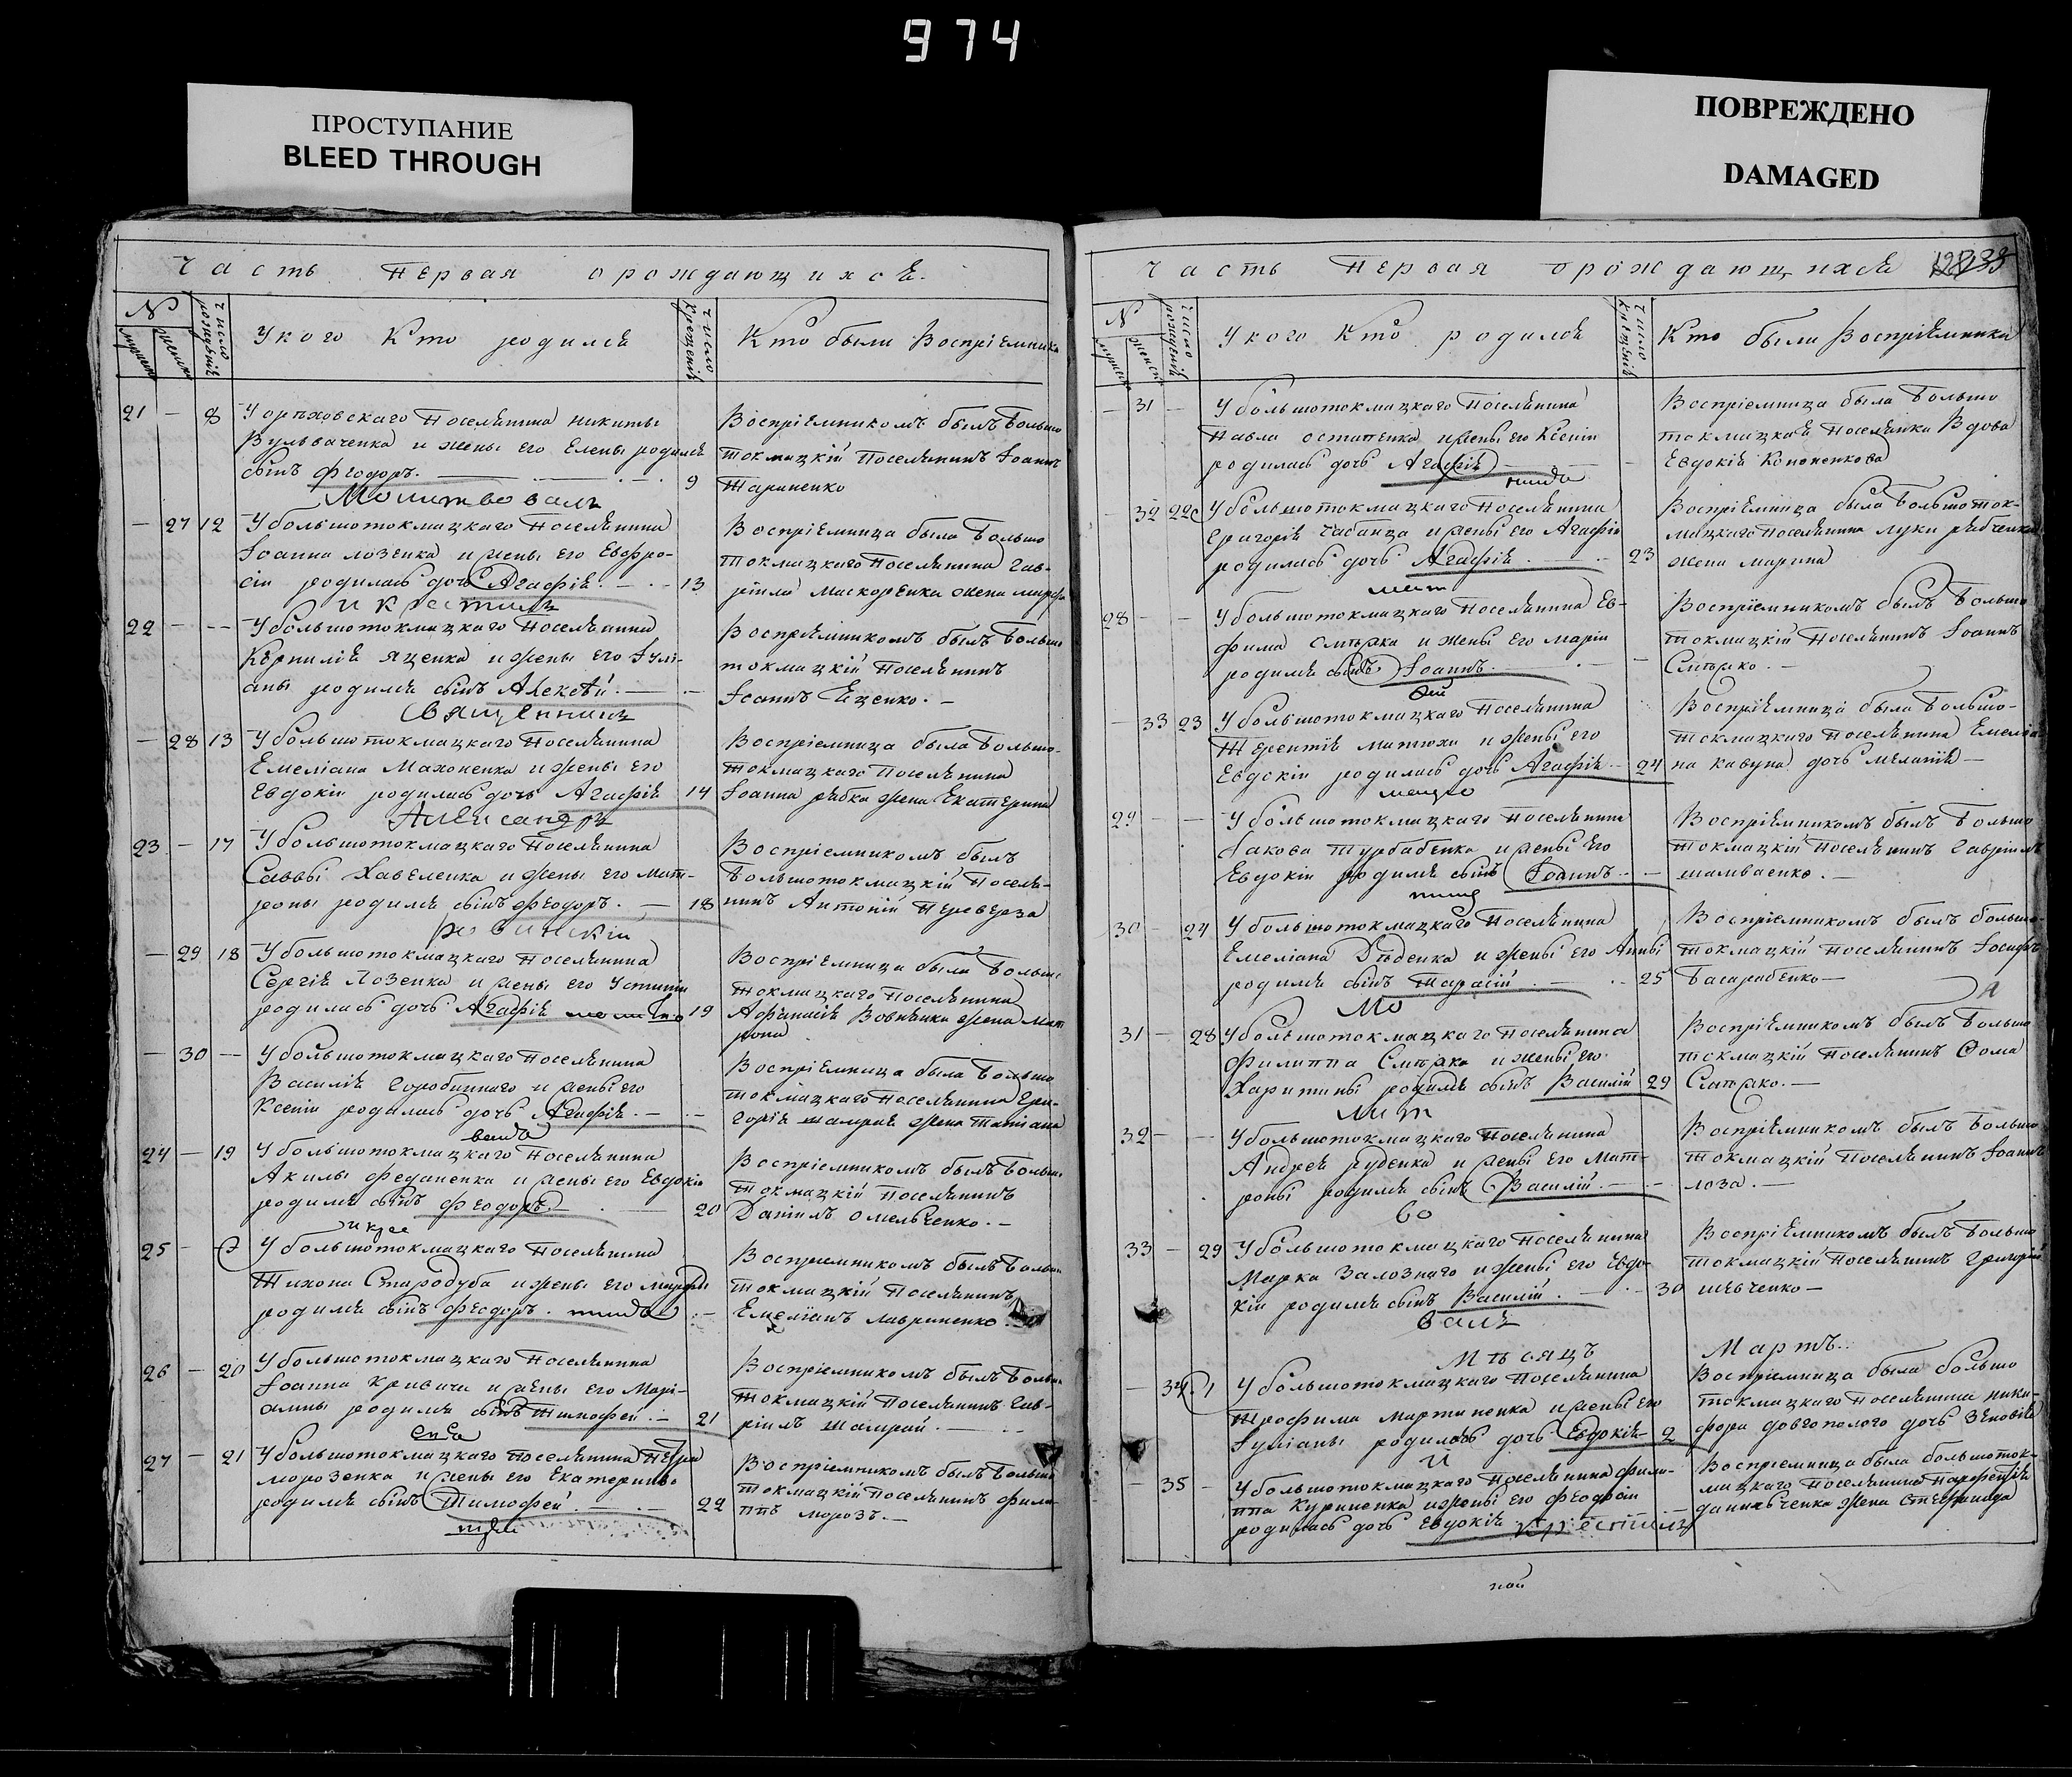 974
ПРОСТУПАНИЕ
BLEED THROUGH
ПОВРЕЖДЕНО
DAMAGED
Часть Первая о рождающихся.
№
число рожденія
У кого Кто родился
число крещенія
Кто были Воспріемники
21 — 8 У орѣховскаго Поселянина Никиты
и жены его Елены родился
сынъ Ѳеодоръ. 9
Воспріемникомъ былъ Больше
токмацкій Поселянинъ Іоаннъ
Тариненко
Молитвовалъ
— 27 12 У большотокмацкаго Поселянина
Іоанна Лозенка и жены его Евфро-
сіи родилась дочь Агафія. 13
Воспріемница была Больше
токмацкаго Поселянина Гав-
ріила жена
и крестилъ
22 — — У большотокмацкаго Поселянина
Корнилія Яценка и жены его Іулі-
аны родился сынъ Алексѣй.
Воспріемникомъ былъ Больше
токмацкій Поселянинъ
Іоаннъ Еценко.
Священникъ
— 28 13 У большотокмацкаго Поселянина
Емеліана Махоненка и жены его
Евдокіи родилась дочь Агафія 14
Воспріемница была Больше-
токмацкаго Поселянина
Іоанна Рябка жена Екатерина
Александръ
23 — 17 У большотокмацкаго Поселянина
Саввы Хавеленка и жены его Мат-
роны родился сынъ Ѳеодоръ. 18
Воспріемникомъ былъ
Большотокмацкій Поселя-
нинъ Антоній Переверза
— 29 18 У большотокмацкаго Поселянина
Сергія Лозенка и жены его Устиніи
родилась дочь Агафія 19
Воспріемница была Больше
токмацкаго Поселянина
Афанасія жена Мат
рона
— 30 — У большотокмацкаго Поселянина
Василія Горобиннаго и жены его
Ксеніи родилась дочь Агафія.
Воспріемница была Больше
токмацкаго Поселянина Гри-
горія Шамрая жена Татіана
24 — 19 У большотокмацкаго Поселянина
Акилы Феданенка и жены его Евдокіи
родился сынъ Ѳеодоръ. 20
Воспріемникомъ былъ Больше
токмацкій Поселянинъ
Даніилъ Омельченко.
и кре
25 — У большотокмацкаго Поселянина
Тихона Стародуба и жены его Марфы
родился сынъ Ѳеодоръ.
Воспріемникомъ былъ Больше
токмацкій Поселянинъ
Емеліанъ Лавриненко
26 — 20 У большотокмацкаго Поселянина
Іоанна Кривича и жены его Марі-
амны родился сынъ Тимофей. 21
Воспріемникомъ былъ Больше
токмацкій Поселянинъ Гав-
ріилъ Шамрай.
27 — 21 У большотокмацкаго Поселянина Петра
Морозенка и жены его Екатерины
родился сынъ Тимофей 22
Воспріемникомъ былъ Больше
токмацкій Поселянинъ Фили-
ппъ Морозъ.
Часть Первая о рождающихся
№
число рожденія
У кого Кто родился
число крещенія
Кто были Воспріемники
— 31 — У большотокмацкаго Поселянина
Павла Остапенка и жены его Ксеніи
родилась дочь Агафія
Воспріемница была Больше
токмацкая Поселянка Вдова
Евдокія Кононенкова
— 32 22 У большотокмацкаго Поселянина
Григорія Чабанца и жены его Агафіи
родилась дочь Агафія. 23
Воспріемница была Большоток-
мацкаго Поселянина Луки Рябченка
жена Марина
28 — — У большотокмацкаго Поселянина Ев-
фима и жены его Маріи
родился сынъ Іоаннъ.
Воспріемникомъ былъ Больше
токмацкій Поселянинъ Іоаннъ
— 33 23 У большотокмацкаго Поселянина
Терентія Матюхи и жены его
Евдокіи родилась дочь Агафія 24
Воспріемница была Больше-
токмацкаго Поселянина Емеліа
на Кавуна дочь Меланія
29 — — У большотокмацкаго Поселянина
Іакова Турбабенка и жены его
Евдокіи родился сынъ Іоаннъ
Воспріемникомъ былъ Больше
токмацкій Поселянинъ Гавріилъ
30 — 24 У большотокмацкаго Поселянина
Емеліана Дѣденка и жены его Анны
родился сынъ Тарасій 25
Воспріемникомъ былъ больше-
токмацкій Поселянинъ Іосифъ
Мо
31 — 28 У большотокмацкаго Поселянина
Филиппа и жены его
Харитины родился сынъ Василій 29
Воспріемникомъ былъ Больше
токмацкій Поселянинъ Ѳома
лит
32 — — У большотокмацкаго Поселянина
Андрея Руденка и жены его Мат-
роны родился сынъ Василій.
Воспріемникомъ былъ Больше
токмацкій Поселянинъ Іоаннъ
Лоза.
во
33 — 29 У большотокмацкаго Поселянина
Марка Залознаго и жены его Евдо-
кіи родился сынъ Василій. 30
Воспріемникомъ былъ Больше
токмацкій Поселянинъ Григорій
Шевченко
валъ
Мѣсяцъ Мартъ.
— 34 1 У большотокмацкаго Поселянина
Трофима Мартиненка и жены его
Іуліаны родилась дочь Евдокія 2
Воспріемница была больше
токмацкаго Поселянина Ники-
фора Довгополого дочь Зеновія
и
— 35 — У большотокмацкаго Поселянина Фили-
ппа Куриненка и жены его Феодосіи
родилась дочь Евдокія крестилъ
Воспріемница была большоток-
мацкаго Поселянина Парфентія
Данильченка жена Стефанида